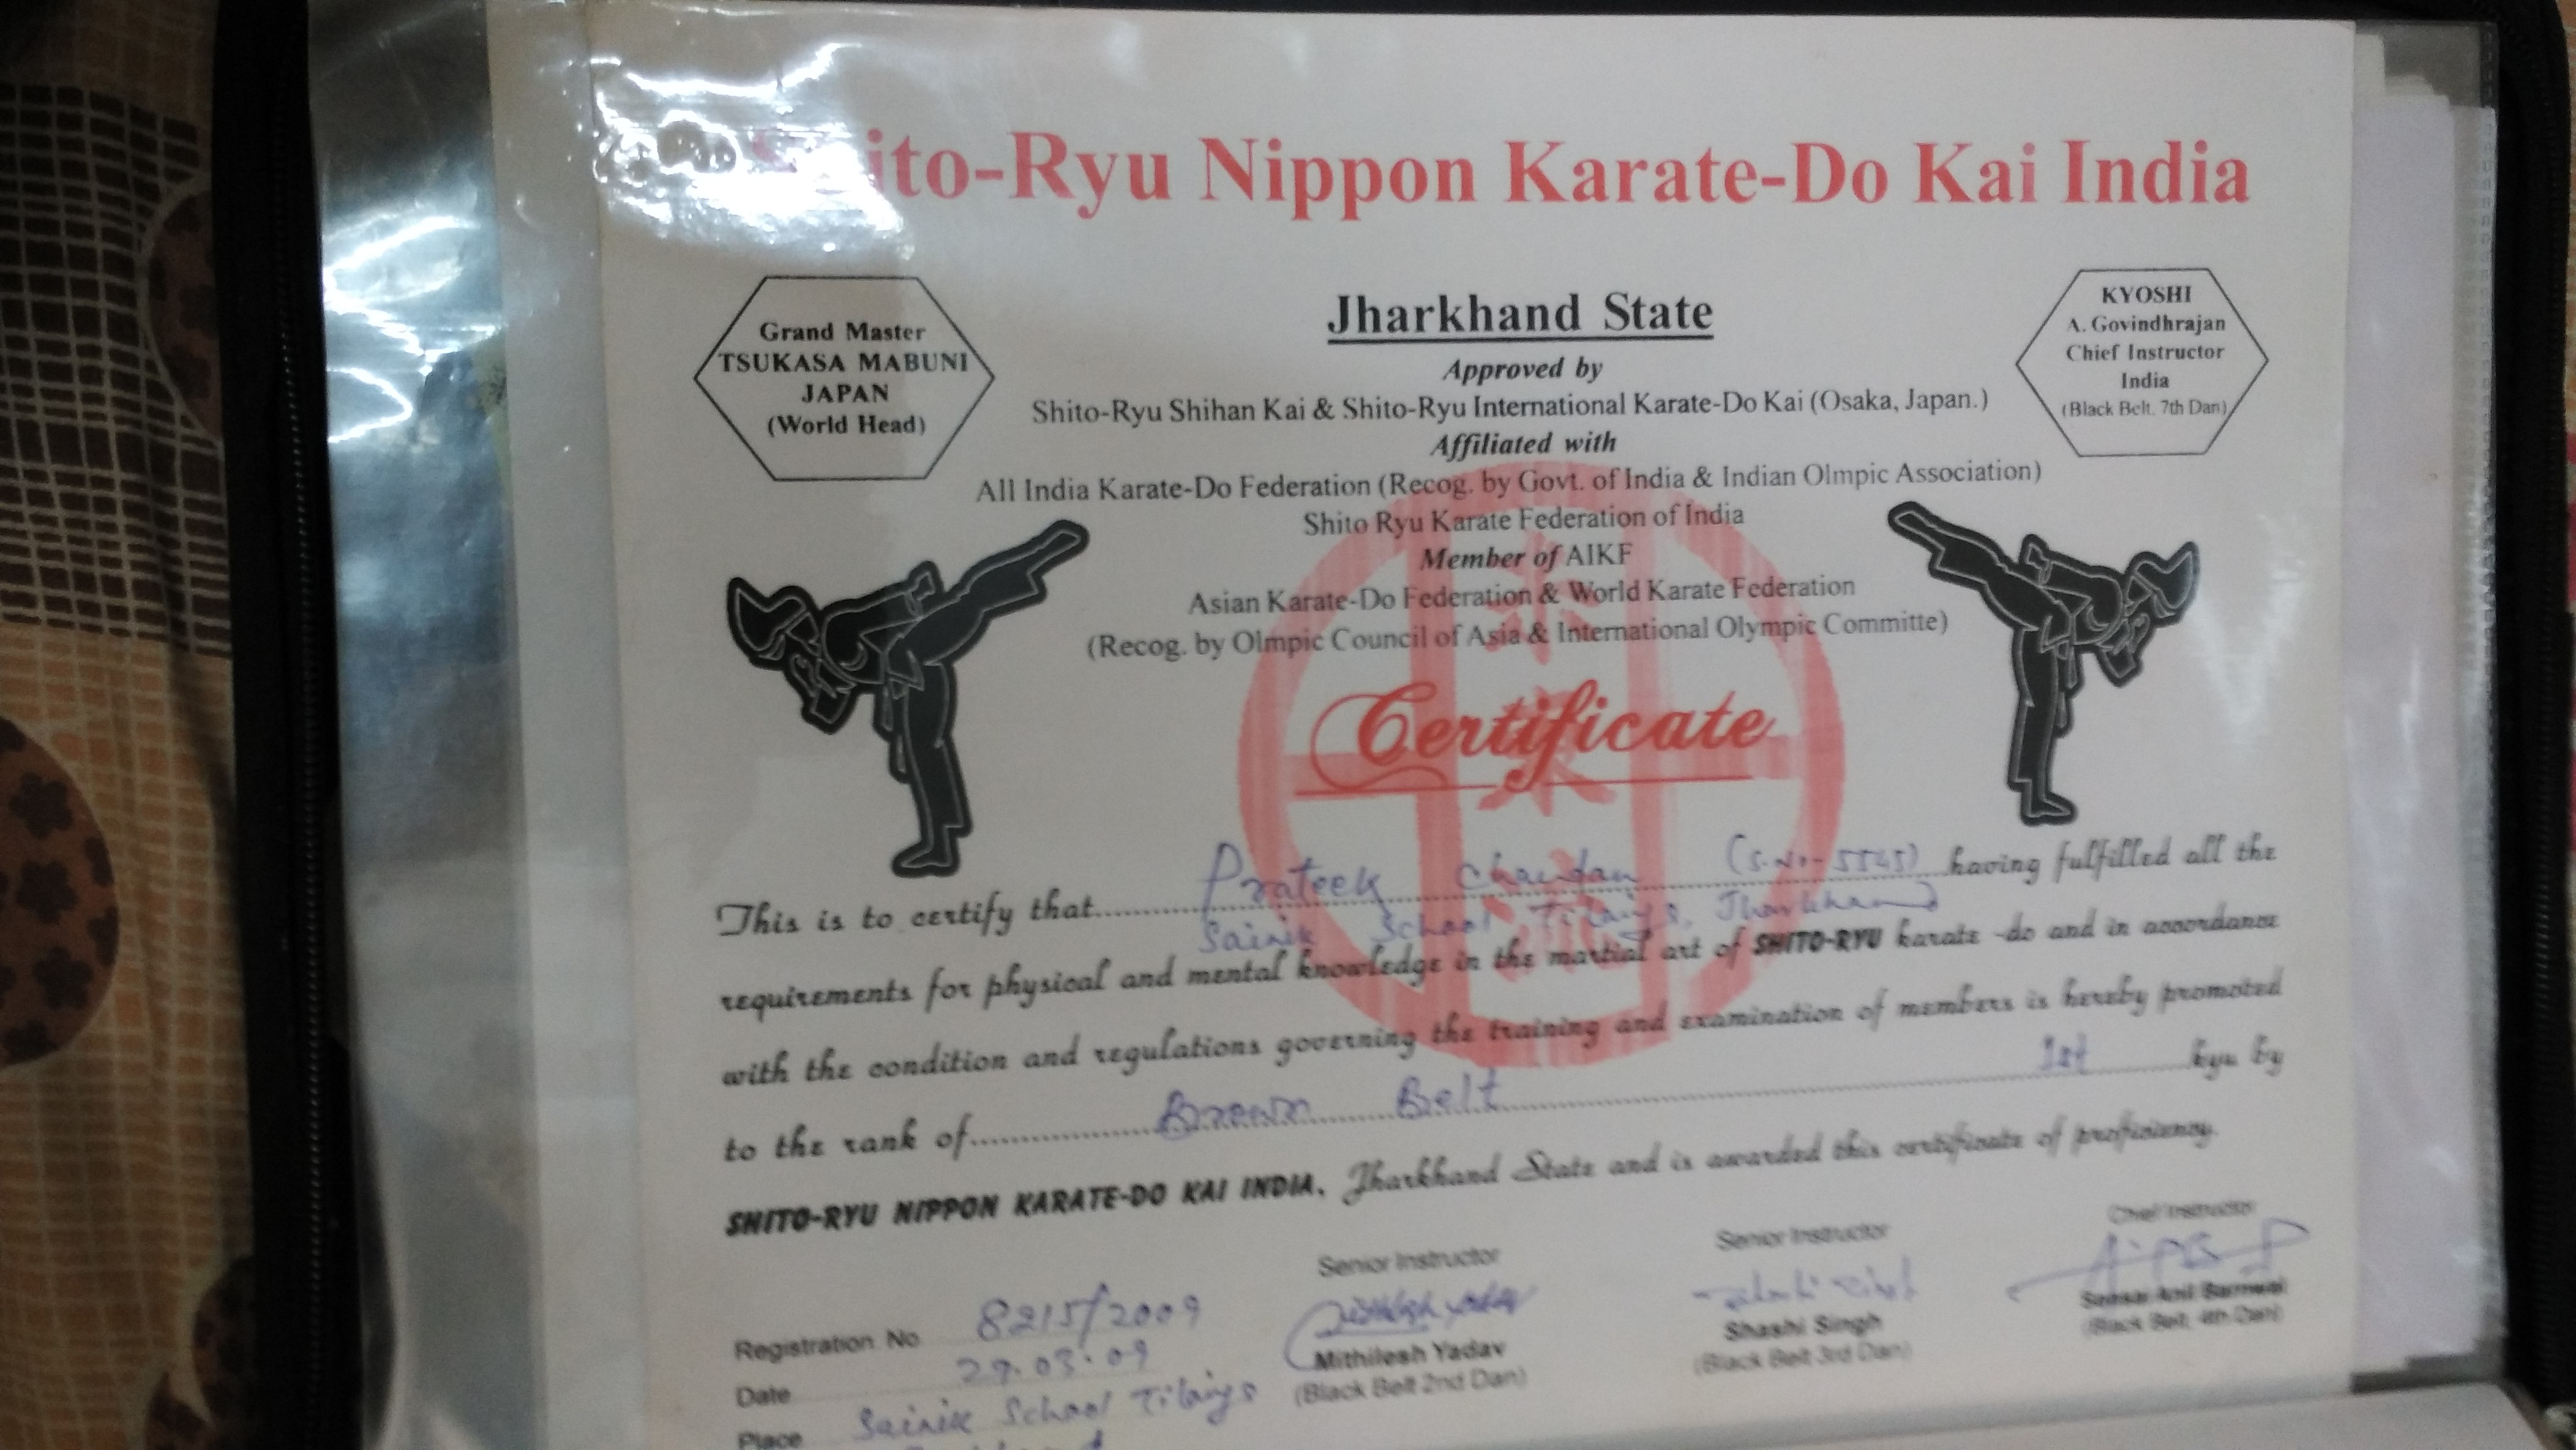 Shito-Ryu Nippon Karate-Do Kai India
Grand Master
TSUKASA MABUNI
JAPAN
(World Head)
Jharkhand State
KYOSHI
A. Govindhrajan
Chief Instructor
India
(Black Belt, 7th Dan)
Approved by
Shito-Ryu Shihan Kai & Shito-Ryu International Karate-Do Kai (Osaka, Japan.)
Affiliated with
All India Karate-Do Federation (Recog. by Govt. of India & Indian Olmpic Association)
Shito Ryu Karate Federation of India
Member of AIKF
Asian Karate-Do Federation & World Karate Federation
(Recog. by Olmpic Council of Asia & International Olympic Committe)
Certificate
This is to certify that Prateek Chandan (S.No- 5545) having fulfilled all the
Sainik School Tilaiya, Jharkhand
requirements for physical and mental knowledge in the martial art of SHITO-RYU karate -do and in accordance
with the condition and regulations governing the training and examination of members is hereby promoted
to the rank of Brown Belt 1st kyu by
SHITO-RYU NIPPON KARATE-DO KAI INDIA, Jharkhand State and is awarded this certificate of proficiency.
Registration No 8215/2009
Date 29.03.09
Place Sainik School Tilaiya
Senior Instructor
Mithilesh Yadav
(Black Belt 2nd Dan)
Senior Instructor
Shashi Singh
(Black Belt 3rd Dan)
Chief Instructor
Sensai Anil Barnwal
(Black Belt, 4th Dan)